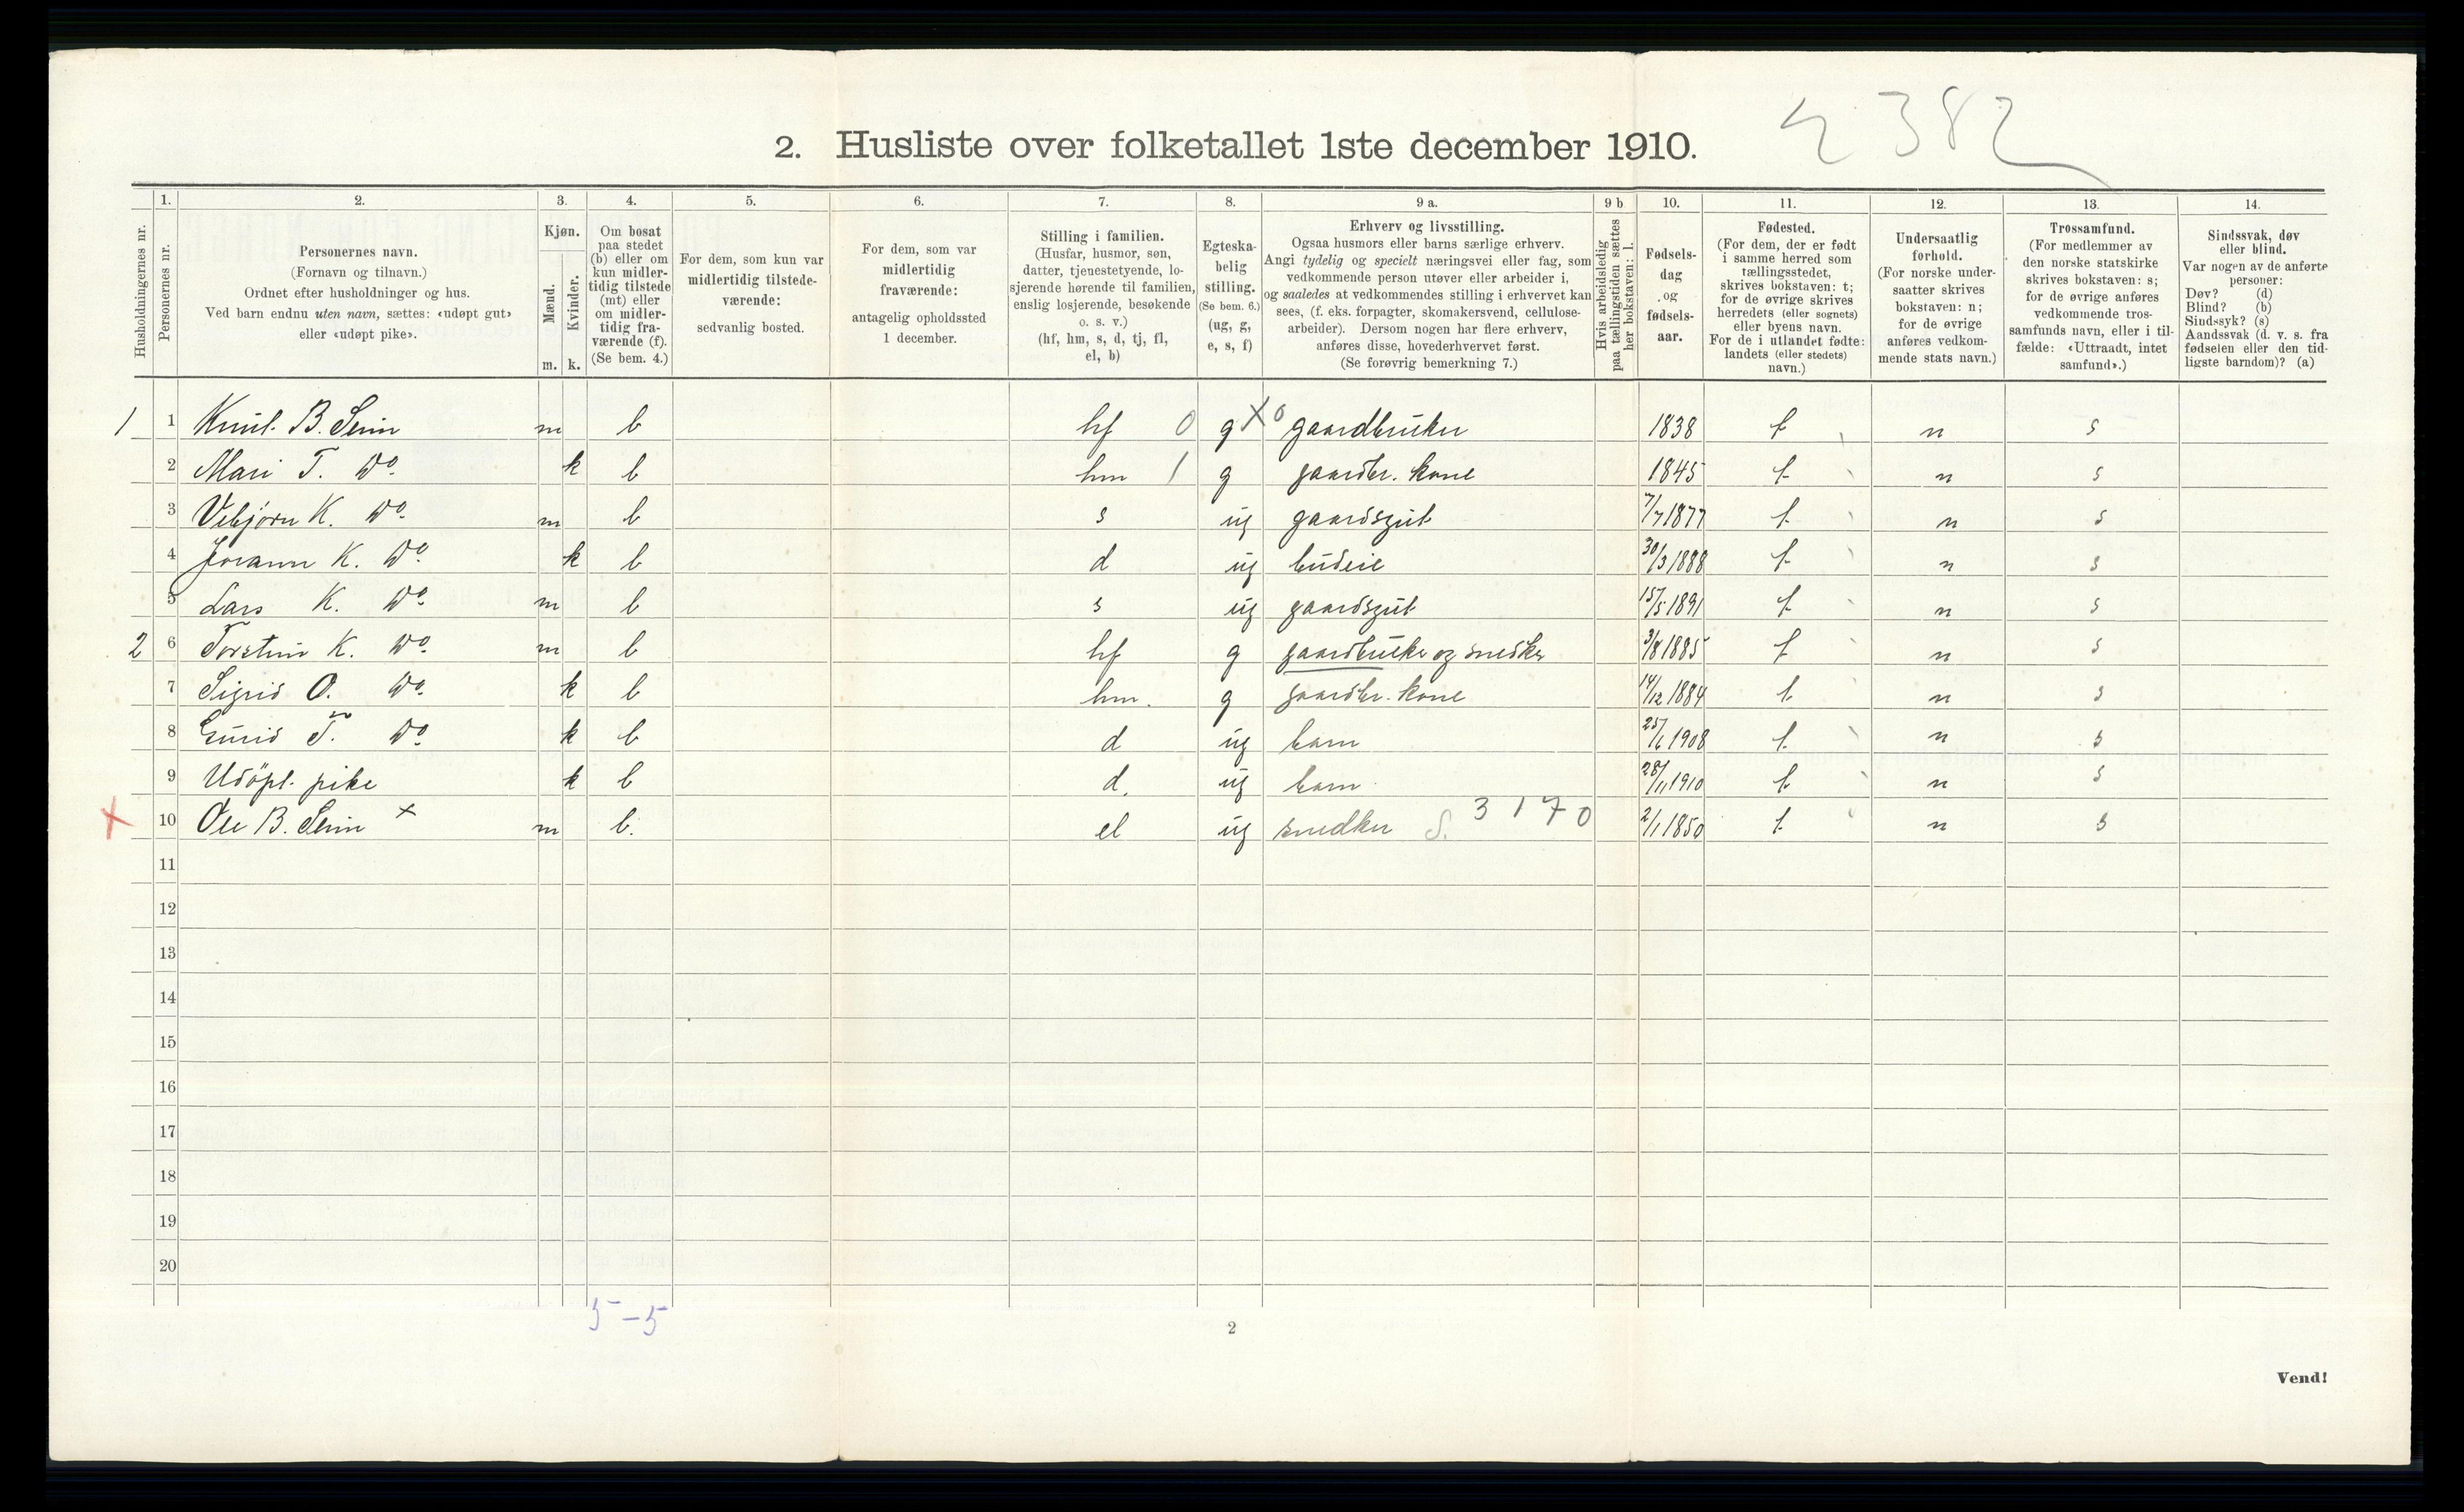 2382
2. Husliste over folketallet 1ste december 1910.
1. 2. 3. 4. 5. 6. 7. 8. 9 a. 9 b 10. 11. 12. 13. 14.
Husholdningernes nr.
Personernes nr.
Personernes navn.
(Fornavn og tilnavn.)
Ordnet efter husholdninger og hus.
Ved barn endnu uten navn, sættes: «udøpt gut»
eller «udøpt pike».
Kjøn.
Mænd.
Kvinder.
m. k.
Om bosat
paa stedet
(b) eller om
kun midler-
tidig tilstede
(mt) eller
om midler-
tidig fra-
værende (f).
(Se bem. 4.)
For dem, som kun var
midlertidig tilstede-
værende:
sedvanlig bosted.
For dem, som var
midlertidig
fraværende:
antagelig opholdssted
1 december.
Stilling i familien.
(Husfar, husmor, søn,
datter, tjenestetyende, lo-
sjerende hørende til familien,
enslig losjerende, besøkende
o. s. v.)
(hf, hm, s, d, tj, fl,
el, b)
Egteska-
belig
stilling.
(Se bem. 6.)
(ug, g,
e, s, f)
Erhverv og livsstilling.
Ogsaa husmors eller barns særlige erhverv.
Angi tydelig og specielt næringsvei eller fag, som
vedkommende person utøver eller arbeider i,
og saaledes at vedkommendes stilling i erhvervet kan
sees, (f. eks. forpagter, skomakersvend, cellulose-
arbeider). Dersom nogen har flere erhverv,
anføres disse, hovederhvervet først.
(Se forøvrig bemerkning 7.)
Hvis arbeidsledig
paa tællingstiden sættes
her bokstaven: l.
Fødsels-
dag
og
fødsels-
aar.
Fødested.
(For dem, der er født
i samme herred som
tællingsstedet,
skrives bokstaven: t;
for de øvrige skrives
herredets (eller sognets)
eller byens navn.
For de i utlandet fødte:
landets (eller stedets)
navn.)
Undersaatlig
forhold.
(For norske under-
saatter skrives
bokstaven: n;
for de øvrige
anføres vedkom-
mende stats navn.)
Trossamfund.
(For medlemmer av
den norske statskirke
skrives bokstaven: s;
for de øvrige anføres
vedkommende tros-
samfunds navn, eller i til-
fælde: «Uttraadt, intet
samfund».)
Sindssvak, døv
eller blind.
Var nogen av de anførte
personer:
Døv? (d)
Blind? (b)
Sindssyk? (s)
Aandssvak (d. v. s. fra
fødselen eller den tid-
ligste barndom)? (a)
1 1 Knut B. m b hf 0 g X 0 gaardbruker 1838 t n s
2 Mari T. Do k b hm 1 g gaardbr. kone 1845 t n s
3 Vebjørn K. Do m b s ug gaardsgut 7/7 1877 t n s
4 K. Do k b d ug budeie 30/3 1888 t n s
5 Lars K. Do m b s ug gaardsgut 15/5 1891 t n s
2 6 Torstein K. Do m b hf g gaardbruker og snedker 3/8 1885 t n s
7 Sigrid O. Do k b hm. g gaardbr. kone 14/12 1884 t n s
8 Gunid T. Do k b d ug barn 25/6 1908 t n s
9 Udöpt pike k b d. ug barn 28/11 1910 t n s
X 10 Ole B. X m b. el ug snedker S. 3170 2/1 1850 t n s
11
12
13
14
15
16
17
18
19
20
5-5
2
Vend!